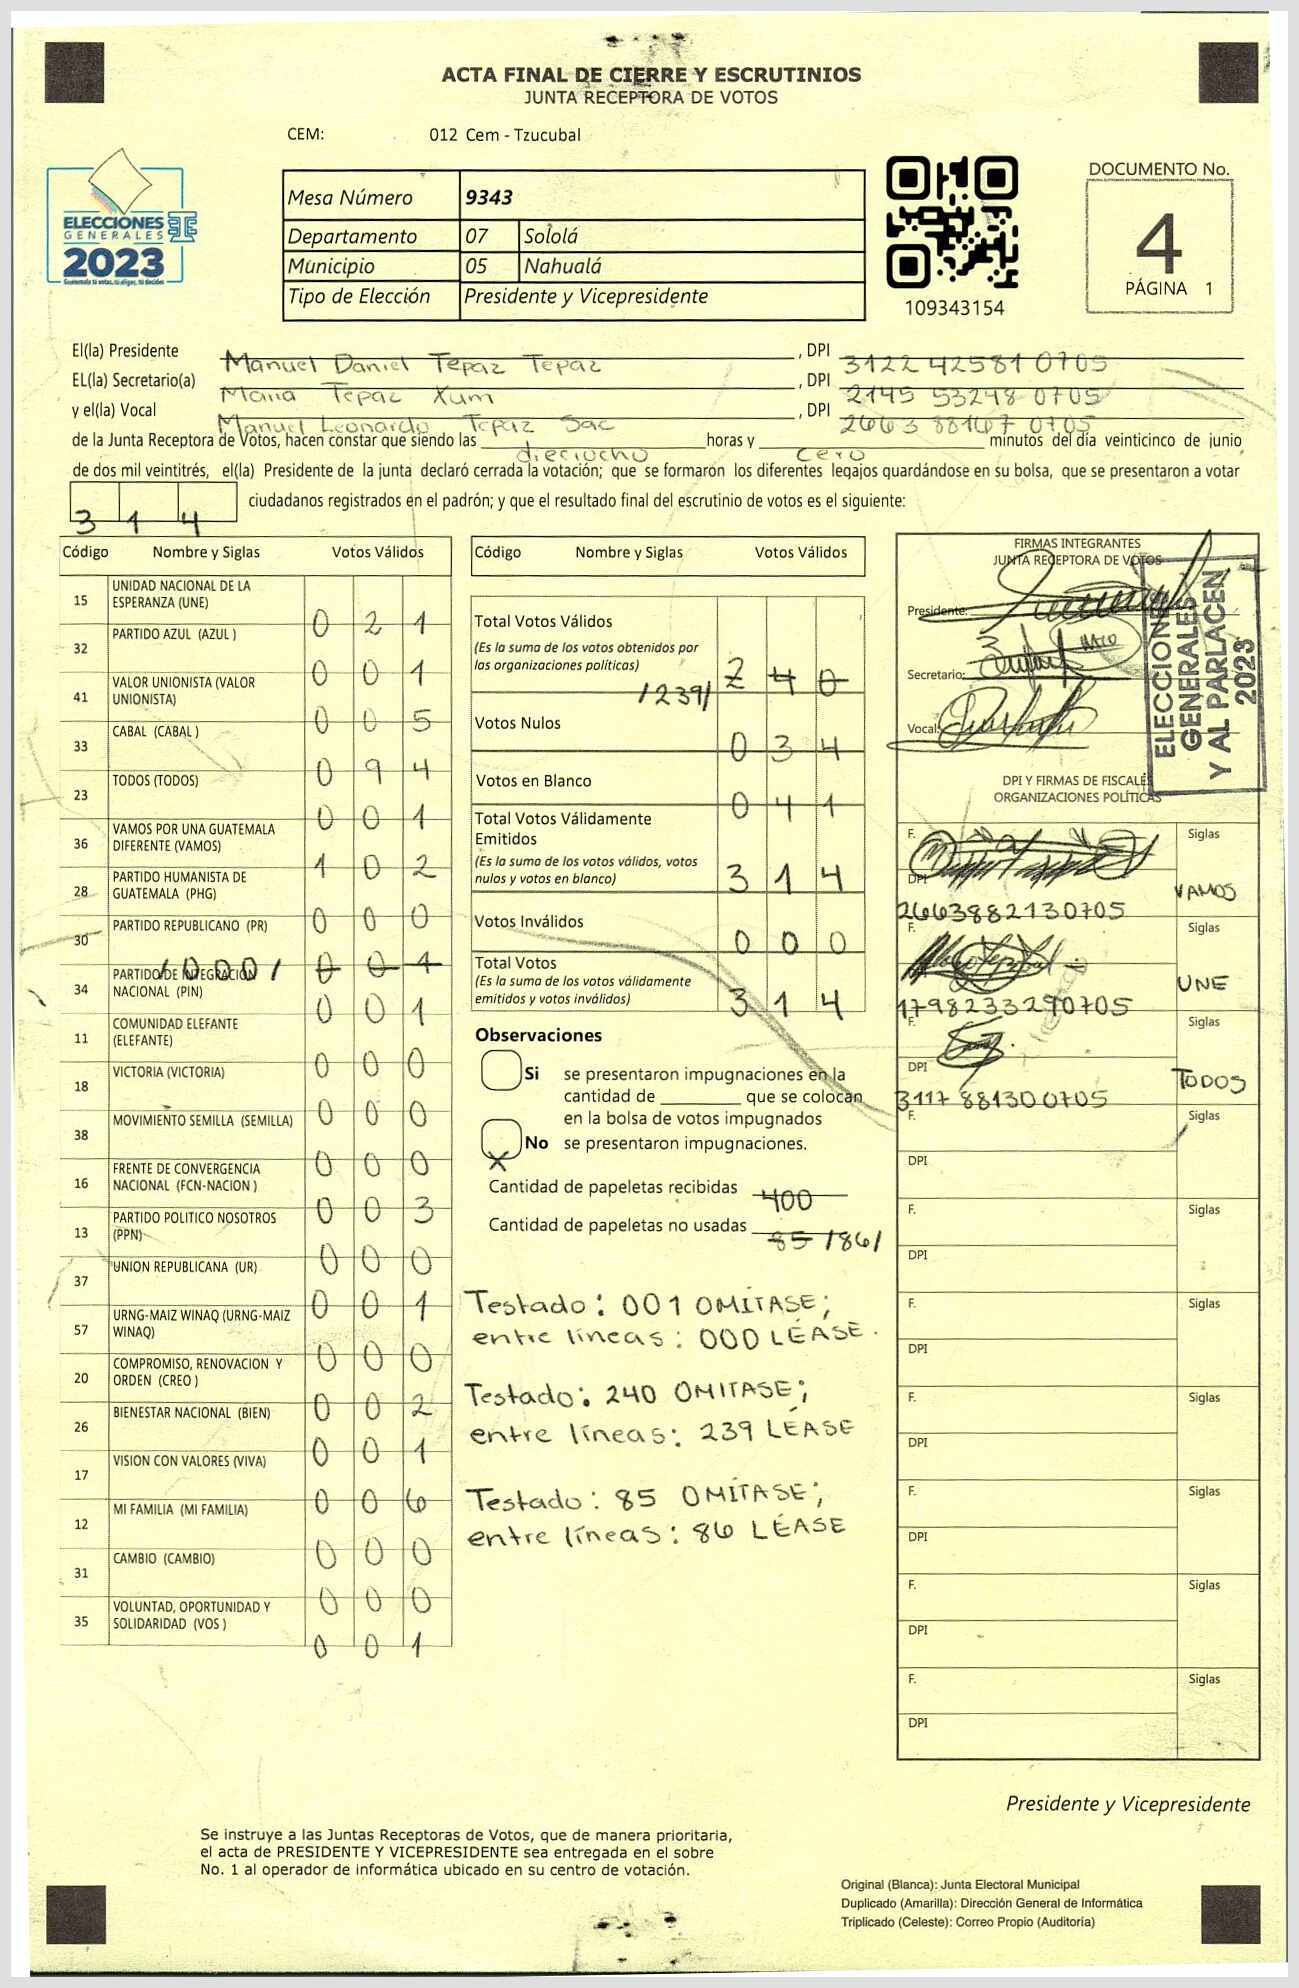 ACTA FINAL DE CIERRE Y ESCRUTINIOS
JUNTA RECEPTORA DE VOTOS
CEM: 012 Cem - Tzucubal
ELECCIONES
GENERALES
2023
Mesa Número 9343
Departamento 07 Sololá
Municipio 05 Nahualá
Tipo de Elección Presidente y Vicepresidente
109343154
DOCUMENTO No.
4
PÁGINA 1
El(la) Presidente Manuel Daniel Tepaz Tepaz , DPI 3122 42581 0705
EL(la) Secretario(a) Maria Tepaz Xum , DPI 2145 53248 0705
y el(la) Vocal Manuel Leonardo Tepaz Sac , DPI 2663 88167 0705
de la Junta Receptora de Votos, hacen constar que siendo las dieciocho horas y cero minutos del día veinticinco de junio
de dos mil veintitrés, el(la) Presidente de la junta declaró cerrada la votación; que se formaron los diferentes legajos guardándose en su bolsa, que se presentaron a votar
3 1 4 ciudadanos registrados en el padrón; y que el resultado final del escrutinio de votos es el siguiente:
Código Nombre y Siglas Votos Válidos
15 UNIDAD NACIONAL DE LA ESPERANZA (UNE) 0 2 1
32 PARTIDO AZUL (AZUL ) 0 0 1
41 VALOR UNIONISTA (VALOR UNIONISTA) 0 0 5
33 CABAL (CABAL ) 0 9 4
23 TODOS (TODOS) 0 0 1
36 VAMOS POR UNA GUATEMALA DIFERENTE (VAMOS) 1 0 2
28 PARTIDO HUMANISTA DE GUATEMALA (PHG) 0 0 0
30 PARTIDO REPUBLICANO (PR) /000/ 0 0 1
34 PARTIDO DE INTEGRACION NACIONAL (PIN) 0 0 1
11 COMUNIDAD ELEFANTE (ELEFANTE) 0 0 0
18 VICTORIA (VICTORIA) 0 0 0
38 MOVIMIENTO SEMILLA (SEMILLA) 0 0 0
16 FRENTE DE CONVERGENCIA NACIONAL (FCN-NACION ) 0 0 3
13 PARTIDO POLITICO NOSOTROS (PPN) 0 0 0
37 UNION REPUBLICANA (UR) 0 0 1
57 URNG-MAIZ WINAQ (URNG-MAIZ WINAQ) 0 0 0
20 COMPROMISO, RENOVACION Y ORDEN (CREO ) 0 0 2
26 BIENESTAR NACIONAL (BIEN) 0 0 1
17 VISION CON VALORES (VIVA) 0 0 6
12 MI FAMILIA (MI FAMILIA) 0 0 0
31 CAMBIO (CAMBIO) 0 0 0
35 VOLUNTAD, OPORTUNIDAD Y SOLIDARIDAD (VOS ) 0 0 1
Código Nombre y Siglas Votos Válidos
Total Votos Válidos
(Es la suma de los votos obtenidos por
las organizaciones políticas)
/239/ 2 4 0
Votos Nulos 0 3 4
Votos en Blanco 0 4 1
Total Votos Válidamente
Emitidos
(Es la suma de los votos válidos, votos
nulos y votos en blanco) 3 1 4
Votos Inválidos 0 0 0
Total Votos
(Es la suma de los votos válidamente
emitidos y votos inválidos) 3 1 4
Observaciones
Si se presentaron impugnaciones en la
cantidad de ________ que se colocan
en la bolsa de votos impugnados
X No se presentaron impugnaciones.
Cantidad de papeletas recibidas 400
Cantidad de papeletas no usadas 85 /86/
Testado: 001 OMÍTASE;
entre líneas: 000 LÉASE.
Testado: 240 OMITASE;
entre líneas: 239 LÉASE
Testado: 85 OMÍTASE;
entre líneas: 86 LÉASE
FIRMAS INTEGRANTES
JUNTA RECEPTORA DE VOTOS
Presidente:
Secretario:
Vocal:
ELECCIONES
GENERALES
Y AL PARLACEN
2023
DPI Y FIRMAS DE FISCALES
ORGANIZACIONES POLÍTICAS
F. Siglas
DPI 2663882130705 VAMOS
F. Siglas
1798233290705 UNE
F. Siglas
DPI 3117 88130 0705 TODOS
F. Siglas
DPI
F. Siglas
DPI
F. Siglas
DPI
F. Siglas
DPI
F. Siglas
DPI
F. Siglas
DPI
F. Siglas
DPI
Presidente y Vicepresidente
Se instruye a las Juntas Receptoras de Votos, que de manera prioritaria,
el acta de PRESIDENTE Y VICEPRESIDENTE sea entregada en el sobre
No. 1 al operador de informática ubicado en su centro de votación.
Original (Blanca): Junta Electoral Municipal
Duplicado (Amarilla): Dirección General de Informática
Triplicado (Celeste): Correo Propio (Auditoría)